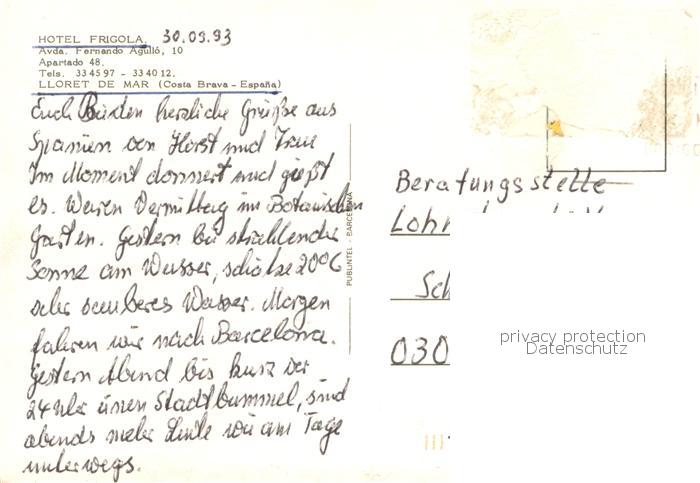 HOTEL FRIGOLA, 30.09.93
Avda. Fernando Agulló, 10
Apartado 48.
Tels. 33 45 97 - 33 40 12.
LLORET DE MAR (Costa Brava - España)
Euch Beiden herzliche Grüße aus
Spanien von Horst und Frau
Im Moment donnert und gießt
es. Waren Vormittag im Botanischen
Garten. Gestern bei strahlender
Sonne am Wasser, schätze 20°C
sehr sauberes Wasser. Morgen
fahren wir nach Barcelona.
Gestern Abend bis kurz vor
24 Uhr einen Stadtbummel, sind
abends mehr Leute wie am Tage
unterwegs.
PUBLINTEL - BARCELONA
Beratungsstelle
Lohn
Sch
030
privacy protection
Datenschutz